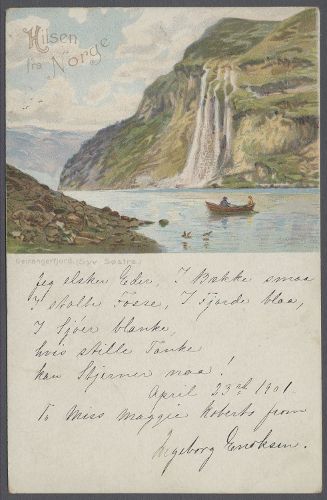 Hilsen
fra Norge
Geirangerfjord. (Syv Søstre.)
Jeg elsker Eder, I Bække smaa
I stolte Fosse, I Fjorde blaa,
I Sjöer blanke,
hvis stille Tanke
kan Stjerner naa!
April 23rd 1901.
To Miss Maggie Roberts from
Ingeborg Enoksen.